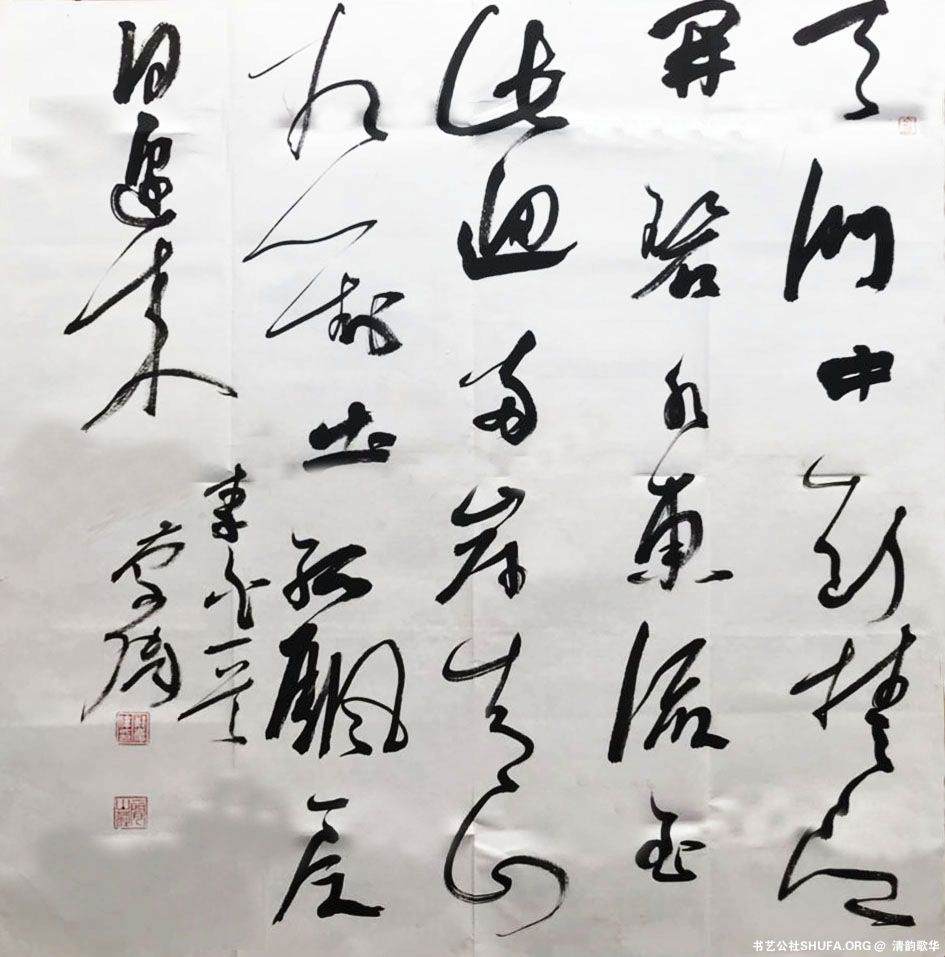 天門中断楚江
開碧水東流至
此迴两岸青山
相對出孤颿一片
日邊来
书艺公社SHUFA.ORG @ 清韵歌华